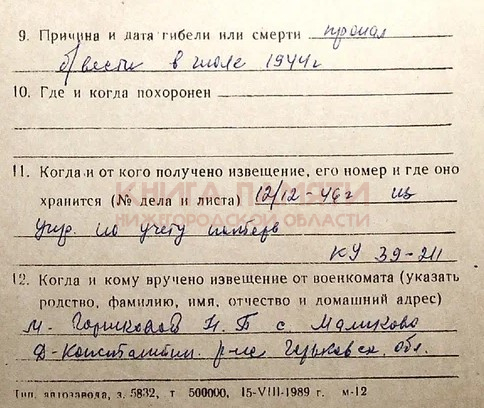 9. Причина и дата гибели или смерти пропал
б/вести в июле 1944г
10. Где и когда похоронен
11. Когда и от кого получено извещение, его номер и где оно
хранится (№ дела и листа) 12/12-46г из
упр. по учету потерь
КУ 39-211
12. Когда и кому вручено извещение от военкомата (указать
родство, фамилию, имя, отчество и домашний адрес)
м- Н.Б с. Маликово
Д-Константин. р-на Горьковск. обл.
КНИГА ПАМЯТИ
НИЖЕГОРОДСКОЙ ОБЛАСТИ
Тип. автозавода, з. 5832, т 500000, 15-VIII-1989 г. м-12